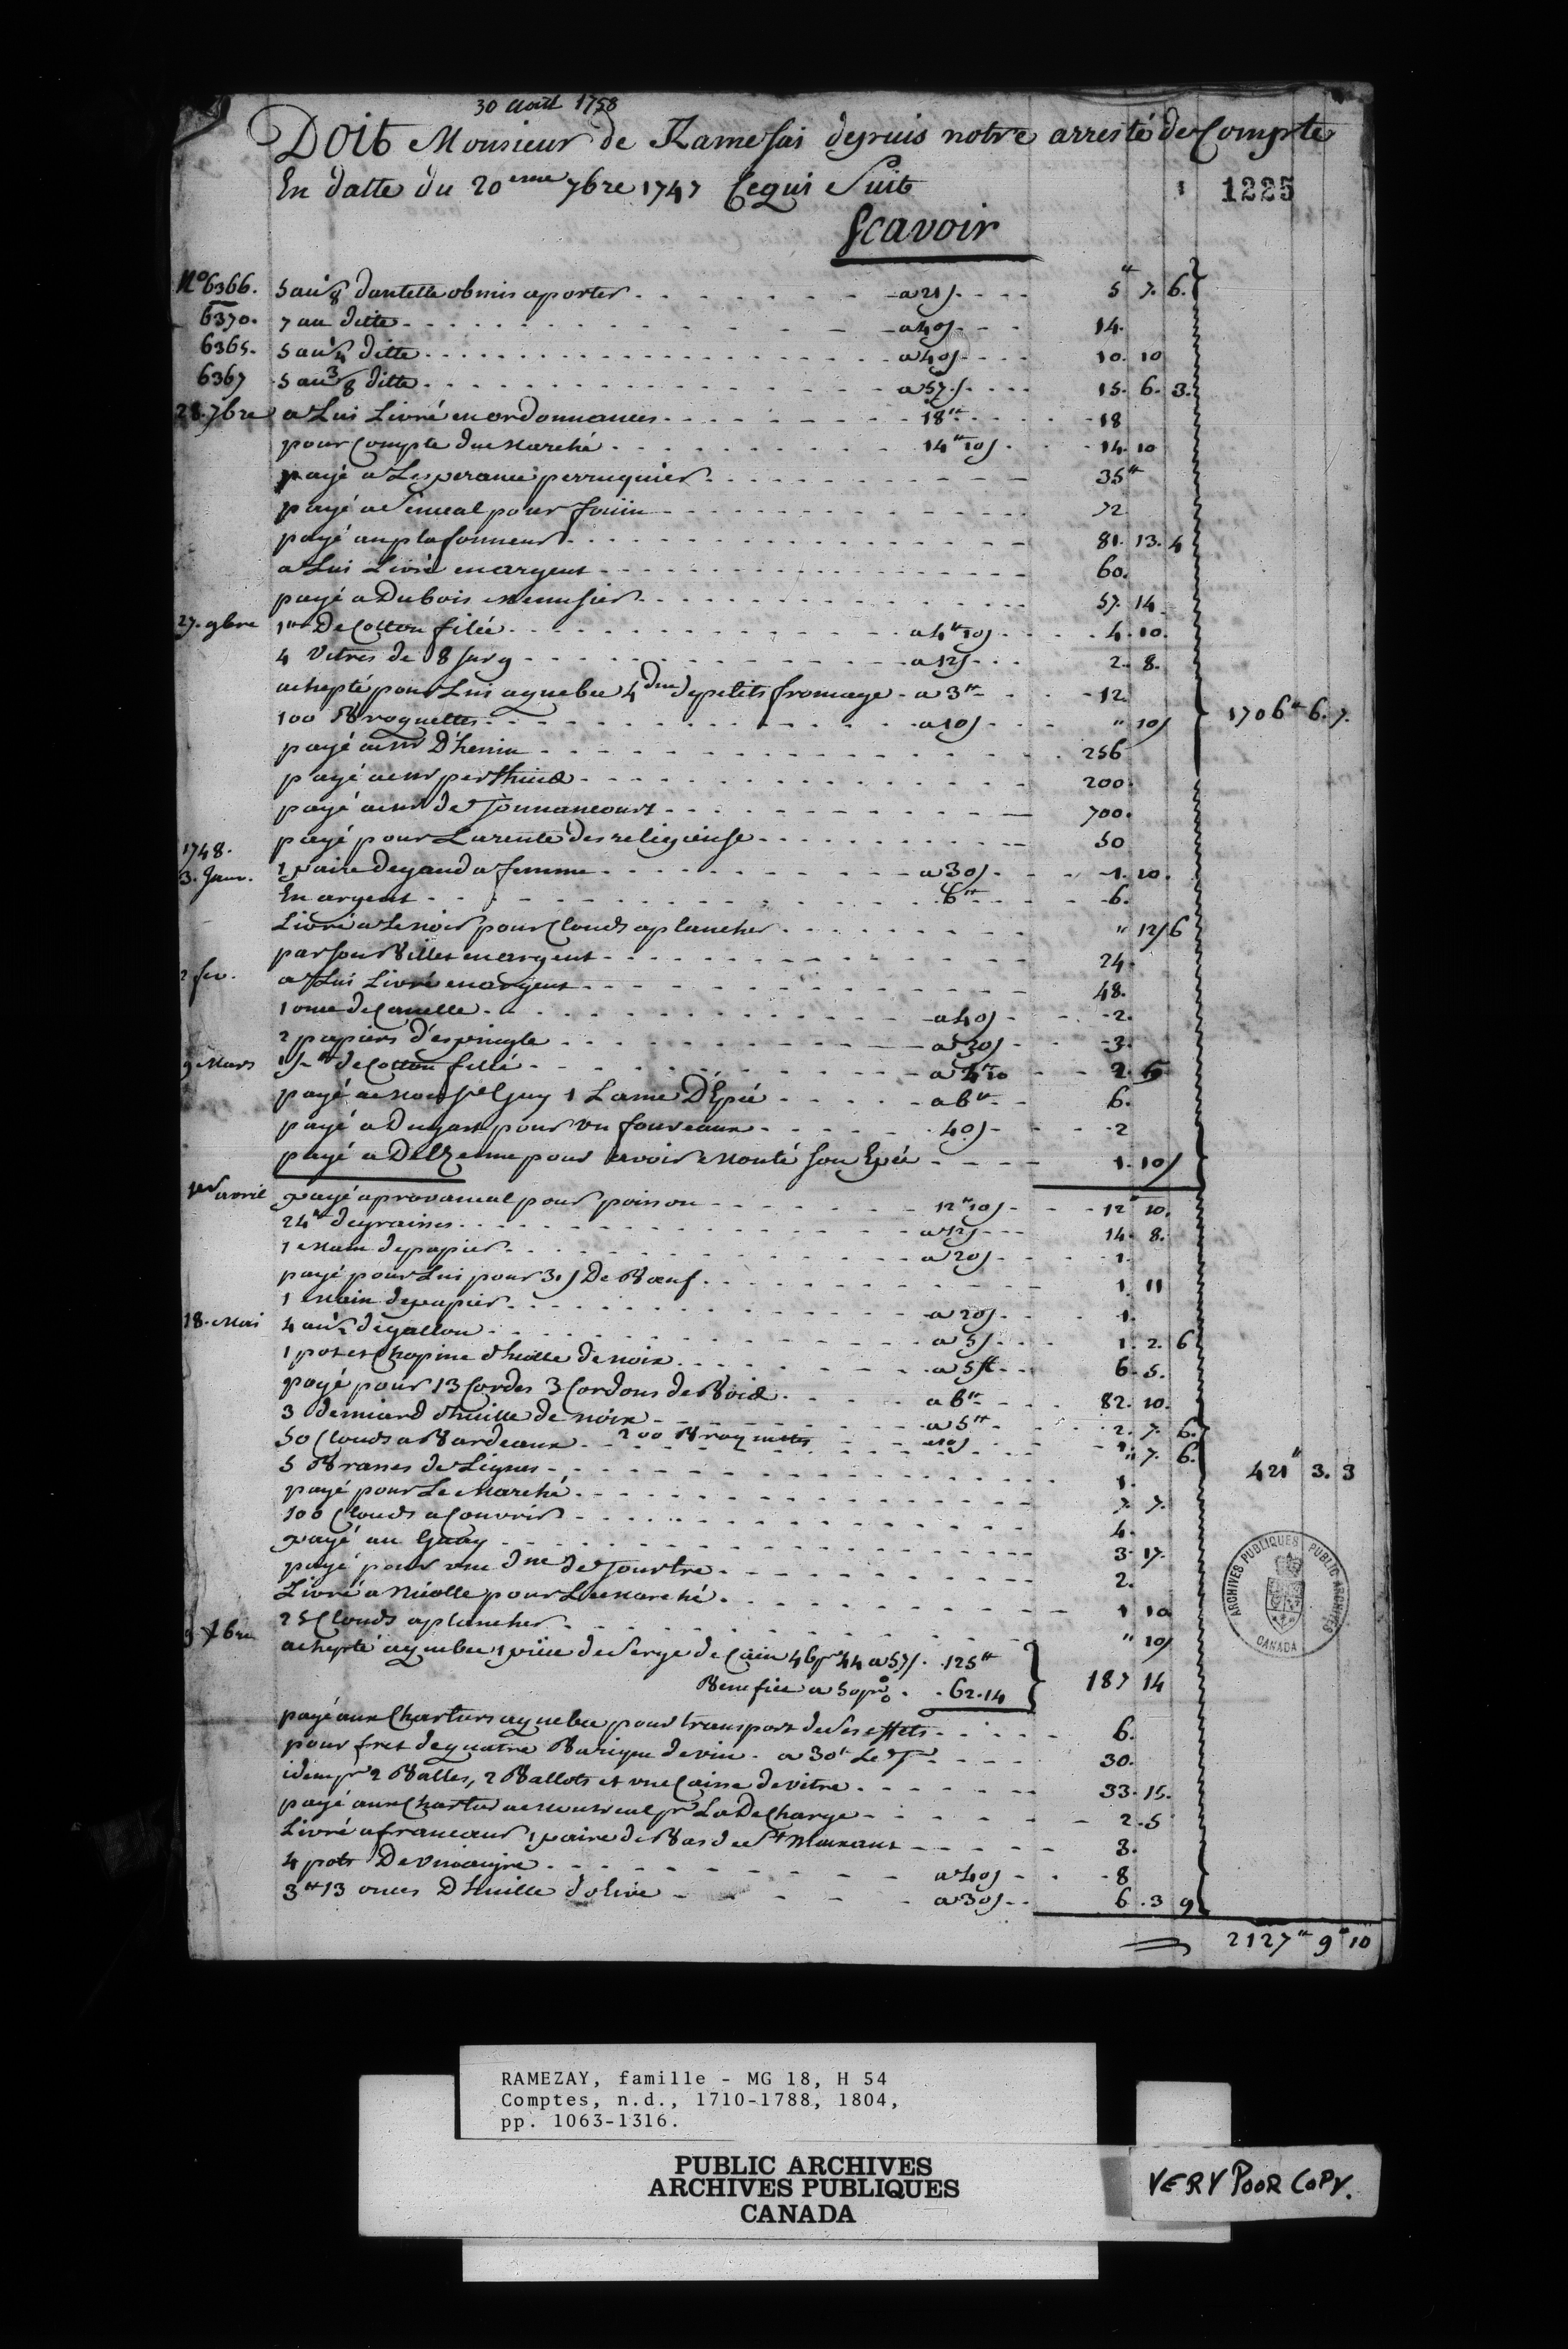 30 aoust 1758
Doit Monsieur de Ramesai depuis notre arresté de Compte
En datte du 20eme 7bre 1747 Cequi Suit
1 1225
Scavoir
No 6366. 5 au 1/8 dantelle obmis aporter a 21s 5# 7. 6.
6370. 7 au ditte a 40s 14.
6365. 5 au 1/4 ditte a 40s 10. 10
6367 5 au 3/8 ditte a 57s 15. 6. 3.
28. 7bre a Lui Livré en ordonnances 18# 18
pour Compte du Marché 14# 10s 14. 10
payé a Lesperance perruquier 35#
payé a Seneical pour foüin 72
payé au plafonneur 81. 13. 4
a Lui Livré en argent 60.
payé a Dubois Menusier 57. 14
27. 9bre 1# De Cotton filée a 4# 10s 4. 10.
4 Vitres de 8 sur 9 a 12s 2. 8.
achepté pour Lui a quebec 4 dne de petits fromage a 3# 12
100 Broquettes a 10s " 10s
payé au Sr D'henin 256
payé a mr perthuis 200.
payé a mr de Tonnancourt 700.
1706# 6. 7.
payé pour La rente des religieuse 50
1748.
3. Janv. 1 paire de gand a femme a 30s 1. 10.
En argent 6# 6.
Livré a Lenoir pour Clouds a plancher " 12s 6
par son Billet en argent 24.
2 fev. a Lui Livré en argent 48.
1 once de Canelle a 40s 2.
2 papiers d'espingle a 30s 3.
9 Mars 1/2 # de Cotton fillé a 4# 10 2. 5
payé a Guy 1 Lame D'Epée a 6# 6.
payé a Dugast pour un fourreaux 40s 2
payé a Delzenne pour avoir Monté son Epée 1. 10s
1er avril payé a provancal pour poisson 12# 10s 12 10.
24# de graisses a 12s 14. 8.
1 Main de papier a 20s 1.
payé pour Lui pour 31s De Bœuf 1. 11
1 Main de papier a 20s 1.
18. Mai 4 au 1/2 de gallon a 5s 1. 2. 6
1 pot et Chopine d'huille de noix a 5# 6. 5.
payé pour 13 Cordes 3 Cordons de Bois a 6# 82. 10.
3 demiard d'huille de noix a 5# 2. 7. 6.
50 Clouds a Bardeaux 200 Broquettes a 10s " 7. 6.
421# 3. 3
5 Brasses de Lignes 1.
payé pour Le Marché 7. 7.
100 Clouds a Couvrir 4.
payé au 3. 17.
payé pour une dne de Tourtre 2.
Livré a Nicolle pour Le Marché 1 10
25 Clouds a plancher " 10s
9 7bre achepté a quebec 1 piece de Serge de Caën 46 pr 44 a 57s 125#
Benefice a 50 pr% 62. 14 187 14
payé aux Chartiers a quebec pour transport de Ses effets 6.
pour fret de quatre Barique de vin a 30# Le Tau 30.
idem pr 2 Balles, 2 Ballots et une Caisse de vitre 33. 15.
payé aux Chartier a Montreal pr La DeCharge 2. 5
Livré a francœur 1 paire de Bas de St Maixant 3.
4 pots De vinaigre a 40s 8
3# 13 onces D'huille d'olive a 30s 6. 3 9
2127# 9" 10
ARCHIVES PUBLIQUES PUBLIC ARCHIVES CANADA
RAMEZAY, famille - MG 18, H 54
Comptes, n.d., 1710-1788, 1804,
pp. 1063-1316.
PUBLIC ARCHIVES
ARCHIVES PUBLIQUES
CANADA
VERY POOR COPY.